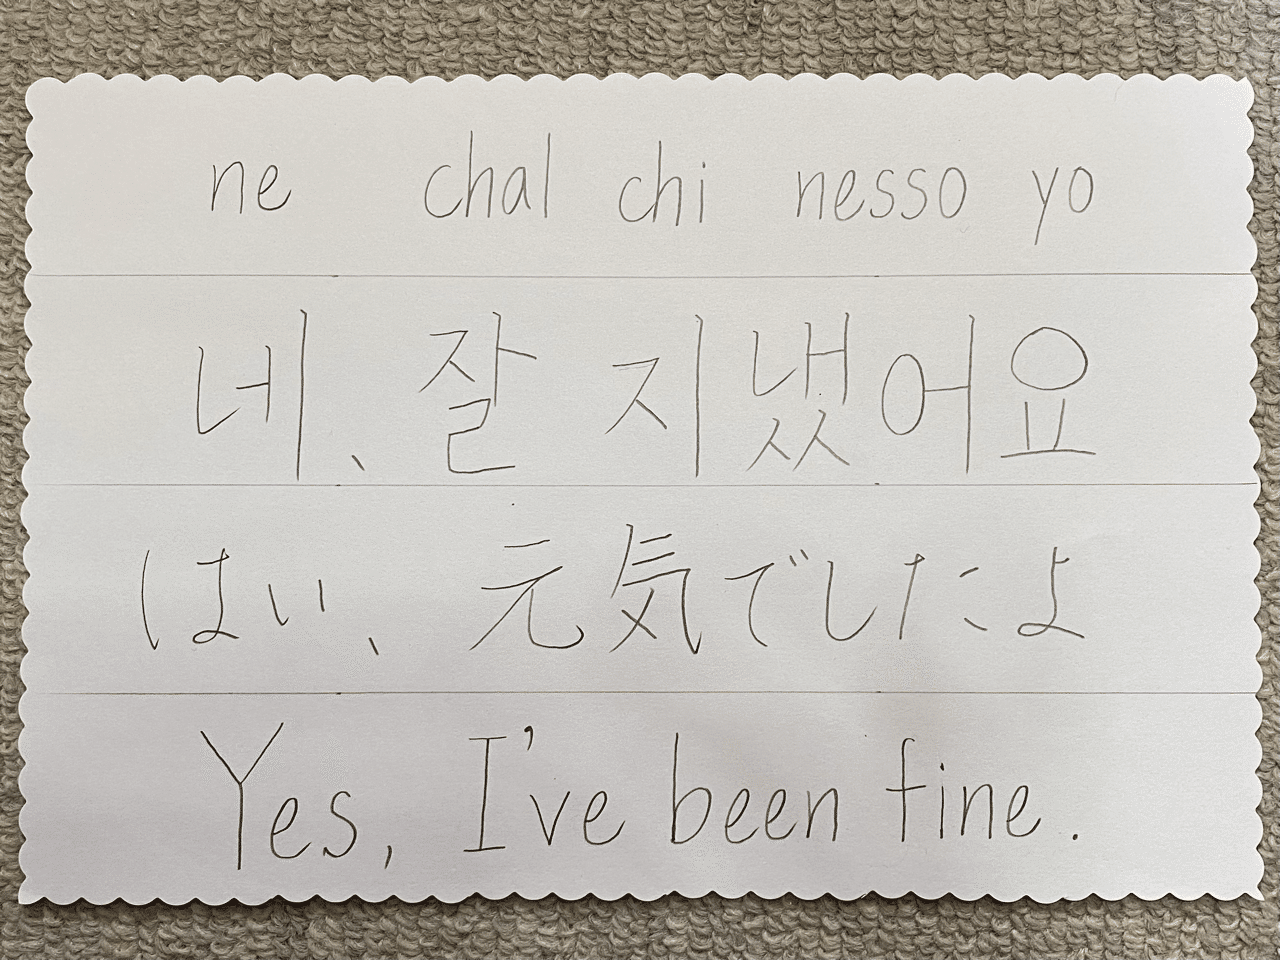 ne chal chi nesso yo
네、잘 지냈어요
はい、元気でしたよ
Yes, I've been fine.